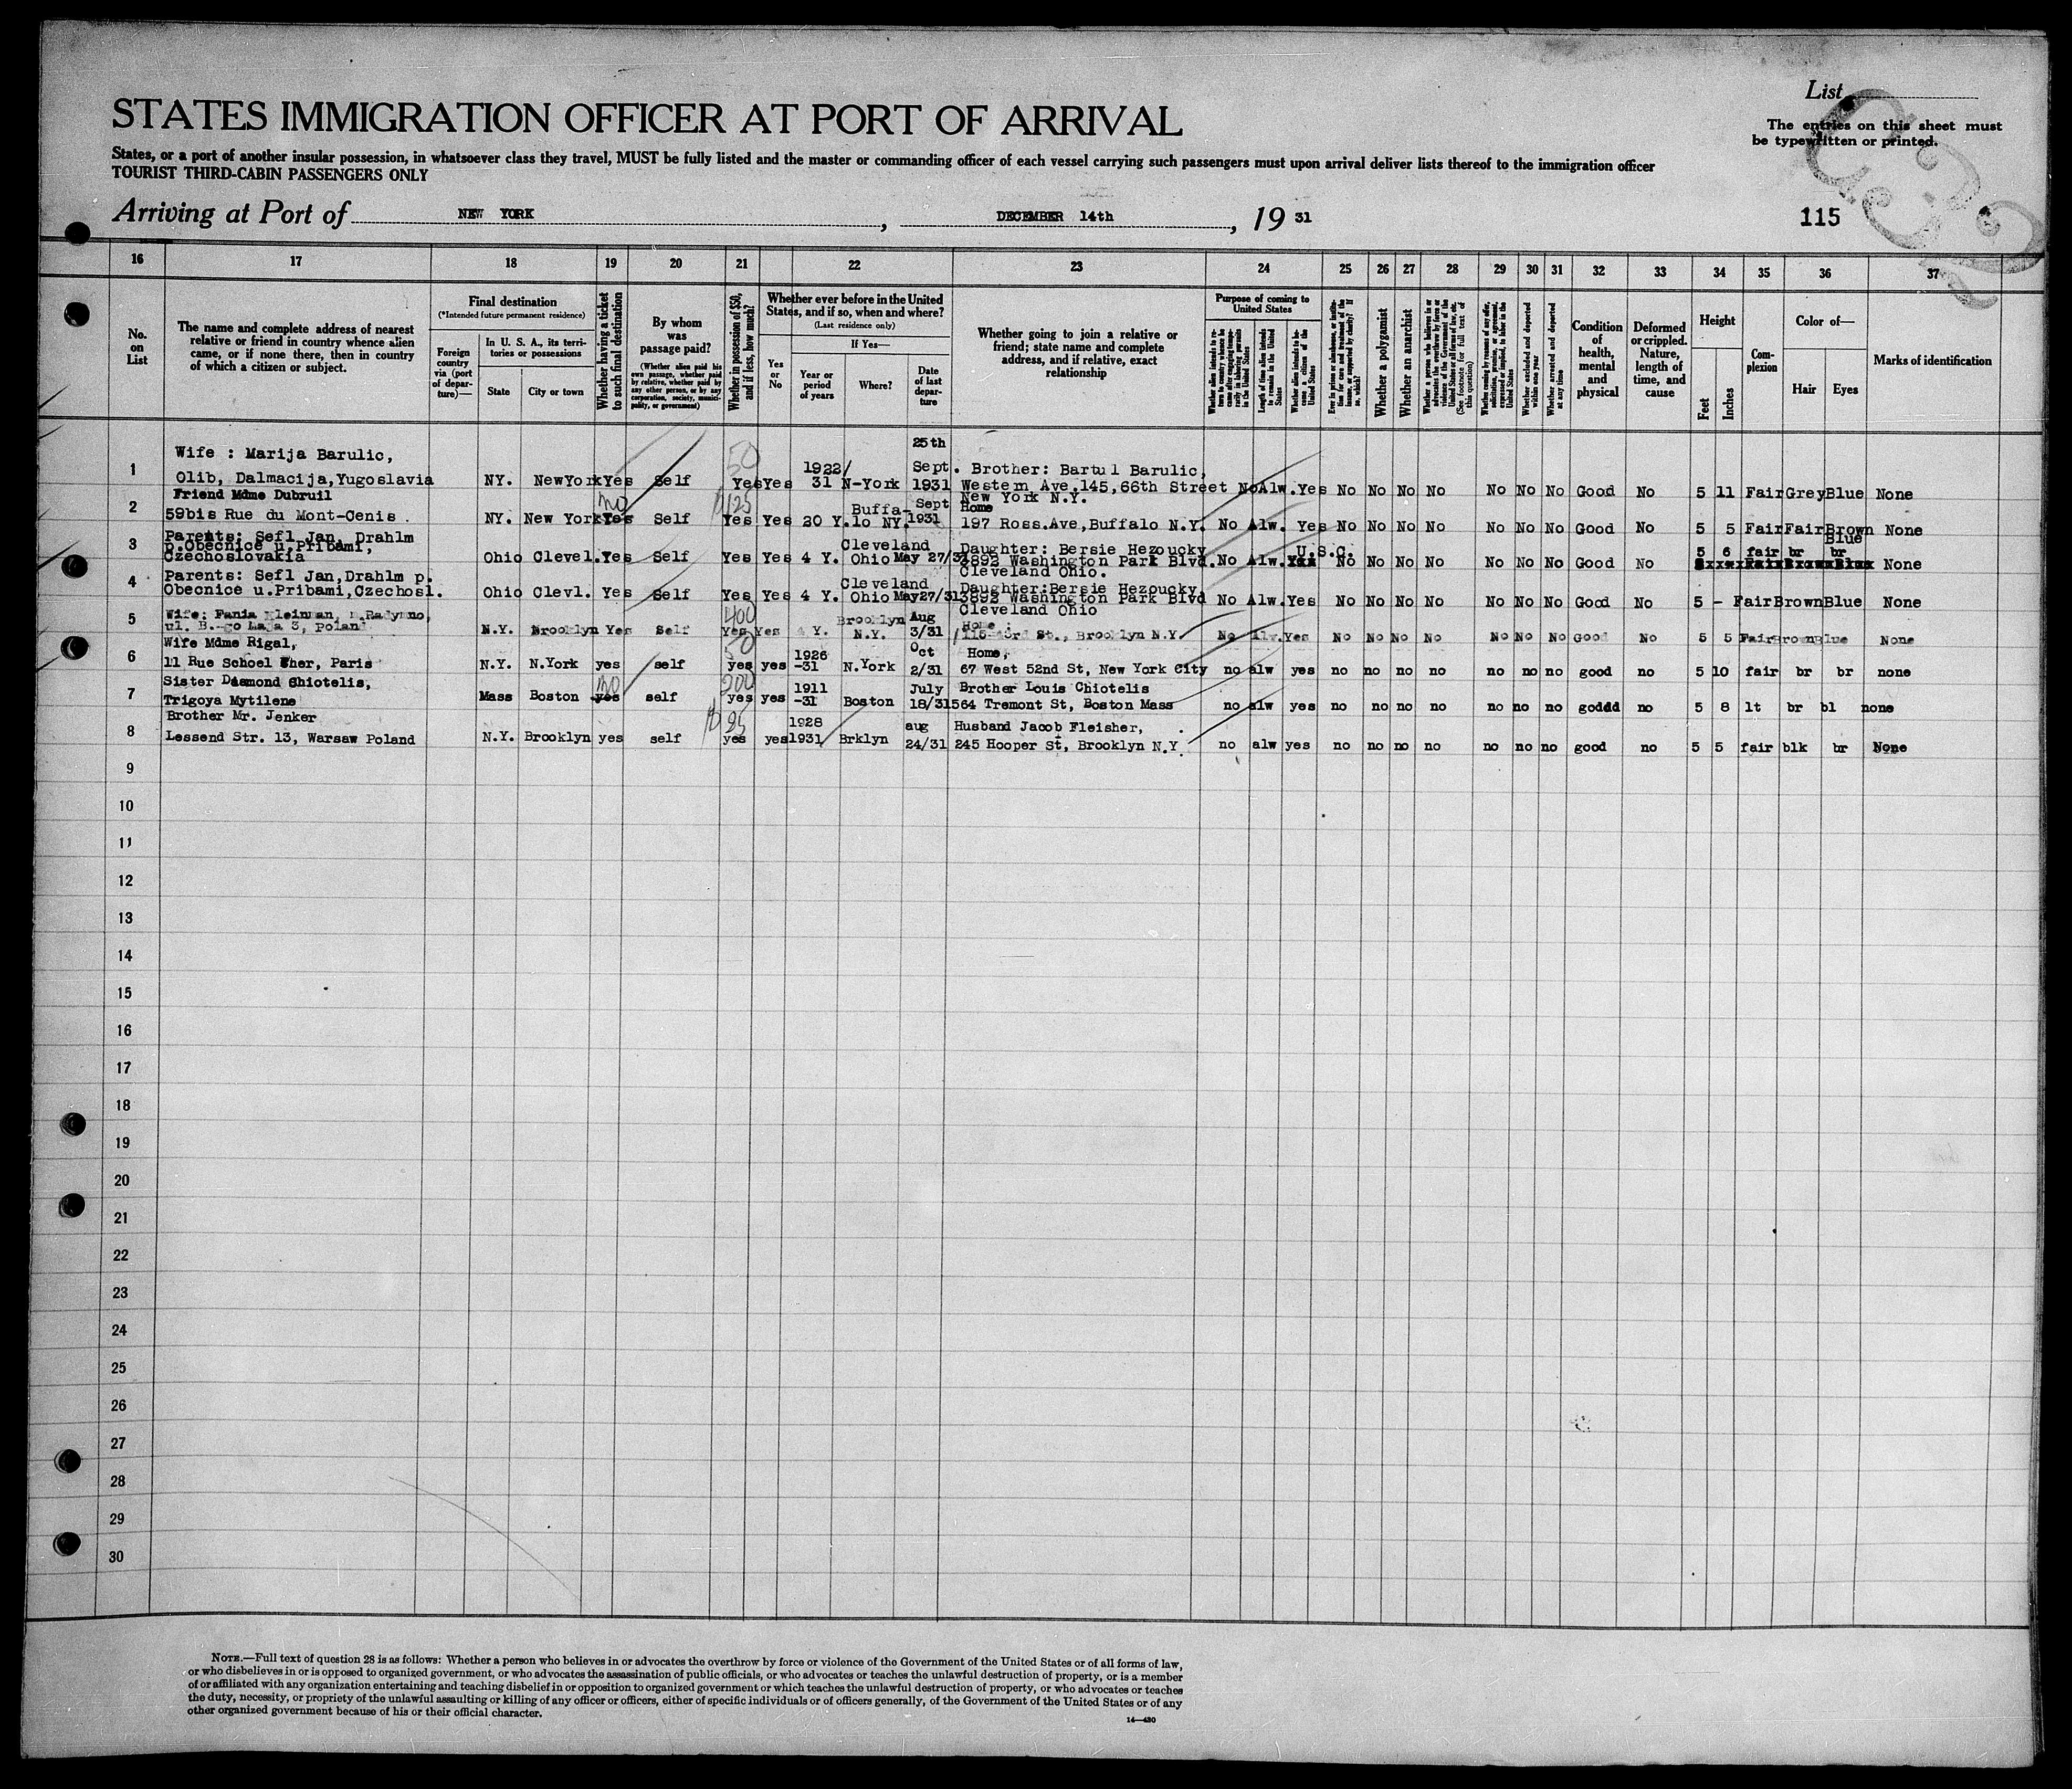 List
The entries on this sheet must
be typewritten or printed.
STATES IMMIGRATION OFFICER AT PORT OF ARRIVAL
States, or a port of another insular possession, in whatsoever class they travel, MUST be fully listed and the master or commanding officer of each vessel carrying such passengers must upon arrival deliver lists thereof to the immigration officer
TOURIST THIRD-CABIN PASSENGERS ONLY
Arriving at Port of NEW YORK, DECEMBER 14th, 19 31
115
16 17 18 19 20 21 22 23 24 25 26 27 28 29 30 31 32 33 34 35 36 37
No. on List
The name and complete address of nearest
relative or friend in country whence alien
came, or if none there, then in country
of which a citizen or subject.
Final destination
(*Intended future permanent residence)
Foreign country via (port of departure)—
In U. S. A., its territories or possessions
State
City or town
Whether having a ticket to such final destination
By whom was passage paid?
(Whether alien paid his own passage, whether paid by relative, whether paid by any other person, or by any corporation, society, municipality, or government)
Whether in possession of $50, and if less, how much?
Whether ever before in the United States, and if so, when and where?
(Last residence only)
Yes or No
If Yes—
Year or period of years
Where?
Date of last departure
Whether going to join a relative or
friend; state name and complete
address, and if relative, exact
relationship
Purpose of coming to United States
Whether a polygamist
Whether an anarchist
Whether excluded and deported within one year
Whether arrested and deported at any time
Condition of health, mental and physical
Deformed or crippled. Nature, length of time, and cause
Height
Feet
Inches
Complexion
Color of—
Hair
Eyes
Marks of identification
25th
1 Wife : Marija Barulic,
Olib, Dalmacija, Yugoslavia NY. NewYork Yes Self 50 Yes Yes 1922/31 N-York Sept. 1931 Brother: Bartul Barulic,
Western Ave, 145, 66th Street
New York N.Y. No Alw. Yes No No No No No No No Good No 5 11 Fair Grey Blue None
2 Friend Mdme Dubruil
59bis Rue du Mont-Cenis. NY. New York no Yes Self 125 Yes Yes 20 Y. Buffalo NY. Sept 1931 Home
197 Ross.Ave, Buffalo N.Y. No Alw. Yes No No No No No No No Good No 5 5 Fair Fair Brown None
3 Parents: Sefl Jan, Drahlm
p.Obecnice u.Pribami,
Czechoslovakia Ohio Clevel. Yes Self Yes Yes 4 Y. Cleveland Ohio May 27/31 Daughter: Bersie Hezoucky
3892 Washington Park Blvd.
Cleveland Ohio. No Alw. U.S.C. No No No No No No No Good No 5 6 fair br br Blue None
4 Parents: Sefl Jan, Drahlm p.
Obecnice u.Pribami, Czechosl. Ohio Clevl. Yes Self Yes Yes 4 Y. Cleveland Ohio May27/31 Daughter: Bersie Hezoucky,
3892 Washington Park Blvd
Cleveland Ohio No Alw. Yes No No No No No No No Good No 5 - Fair Brown Blue None
5 Wife: Fania
ul. 3, Poland N.Y. Brooklyn Yes Self 400 Yes Yes Y. Brooklyn N.Y. Aug 3/31 Home :
St., Brooklyn N.Y. No Alw. Yes No No No No No No No Good No 5 5 Fair Brown Blue None
6 Wife Mdme Rigal,
11 Rue Schoel cher, Paris N.Y. N.York yes self 50 yes yes 1926-31 N.York Oct 2/31 Home,
67 West 52nd St, New York City no alw yes no no no no no no no good no 5 10 fair br br none
7 Sister Diamond Chiotelis,
Trigoya Mytilene Mass Boston no yes self 200 yes yes 1911-31 Boston July 18/31 Brother Louis Chiotelis
564 Tremont St, Boston Mass no alw yes no no no no no no no goddd no 5 8 lt br bl none
8 Brother Mr. Jenker
Lessend Str. 13, Warsaw Poland N.Y. Brooklyn yes self 95 yes yes 1928 1931 Brklyn aug 24/31 Husband Jacob Fleisher,
245 Hooper St, Brooklyn N.Y no alw yes no no no no no no no good no 5 5 fair blk br None
9
10
11
12
13
14
15
16
17
18
19
20
21
22
23
24
25
26
27
28
29
30
NOTE.—Full text of question 28 is as follows: Whether a person who believes in or advocates the overthrow by force or violence of the Government of the United States or of all forms of law,
or who disbelieves in or is opposed to organized government, or who advocates the assassination of public officials, or who advocates or teaches the unlawful destruction of property, or is a member
of or affiliated with any organization entertaining and teaching disbelief in or opposition to organized government or which teaches the unlawful destruction of property, or who advocates or teaches
the duty, necessity, or propriety of the unlawful assaulting or killing of any officer or officers, either of specific individuals or of officers generally, of the Government of the United States or of any
other organized government because of his or their official character.
14—430